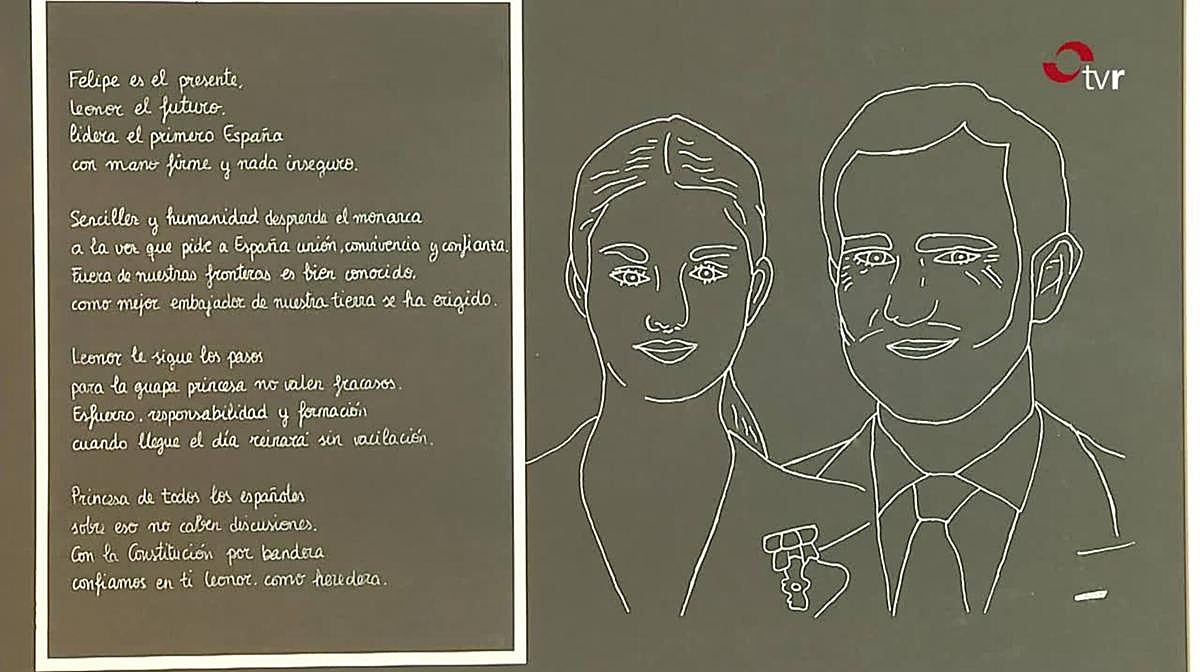 Felipe es el presente,
Leonor el futuro.
lidera el primero España
con mano firme y nada inseguro.
Sencillez y humanidad desprende el monarca
a la vez que pide a España unión, convivencia y confianza.
Fuera de nuestras fronteras es bien conocido,
como mejor embajador de nuestra tierra se ha erigido.
Leonor le sigue los pasos
para la guapa princesa no valen fracasos.
Esfuerzo, responsabilidad y formación
cuando llegue el día reinará sin vacilación.
Princesa de todos los españoles
sobre eso no caben discusiones.
Con la Constitución por bandera
confiamos en ti Leonor. como heredera.
tvr